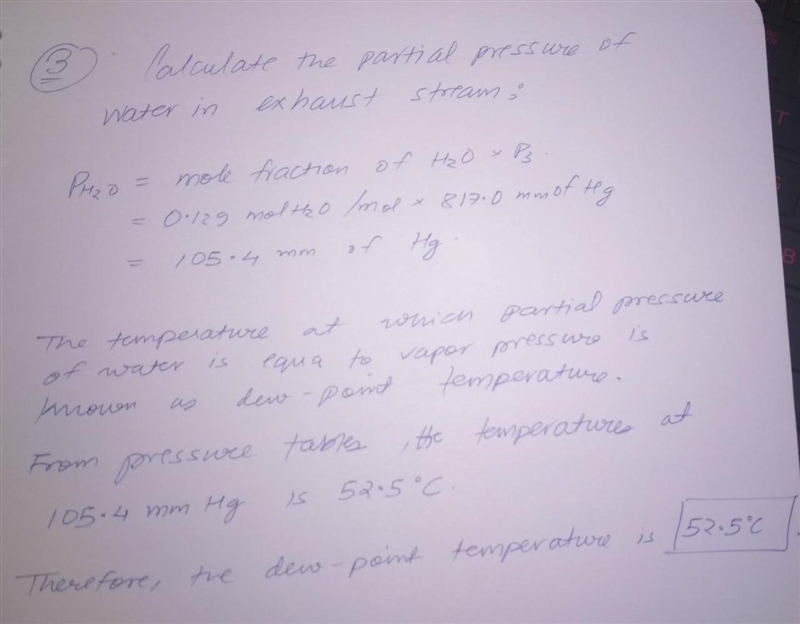 3 Calculate the partial pressure of
water in exhaust stream:
PH2O = mole fraction of H2O × P3.
= 0.129 mol H2O /mol × 817.0 mm of Hg
= 105.4 mm of Hg.
The temperature at which partial pressure
of water is equa to vapor pressure is
known as dew-point temperature.
From pressure tables, the temperatures at
105.4 mm Hg is 52.5°C.
Therefore, the dew-point temperature is 52.5°C.
%
T
B